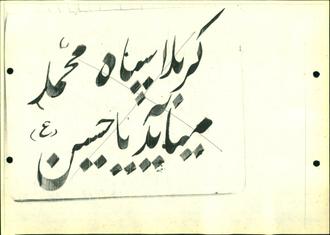 کربلا سپاه محمد
میآید یا حسین (ع)